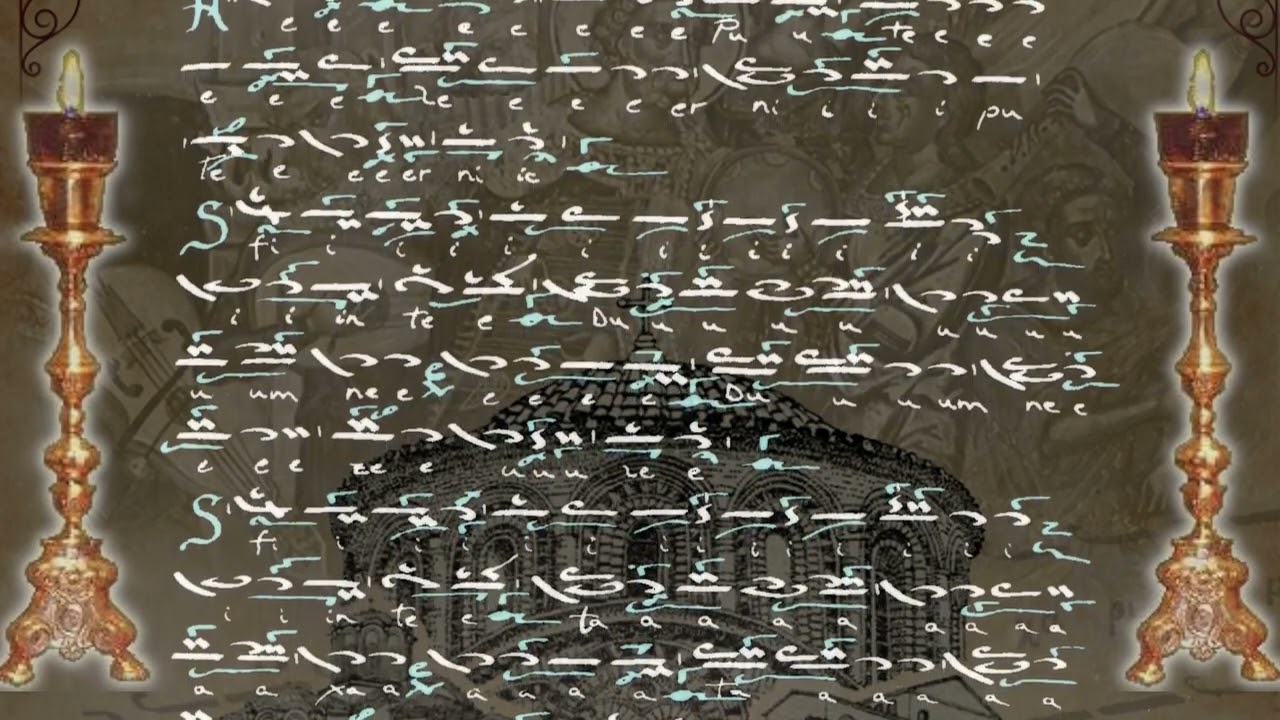 A e e e e e e e e Pu u te e e e
e e e le e e e er ni i i i pu
Pe e e e er ni ic
S fi i i i i i i i i i i i i
i i in te e Du u u u u u u u u
u um ne e e e e e Du u u um ne e
e e e ze e u u u le e
S fi i i i i i i i i i i i i
i i in te e ta a a a a a a a a
a a xa a a a a a ta a a a a a